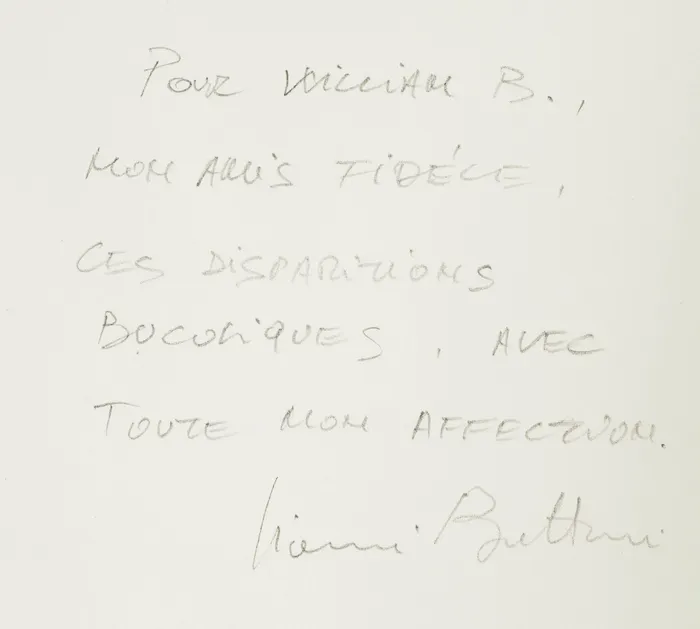 POUR WILLIAM B.,
MON AMIS FIDÉLE,
CES DISPARITIONS
BUCOLIQUES, AVEC
TOUTE MON AFFECTION.
Gianni Burattoni